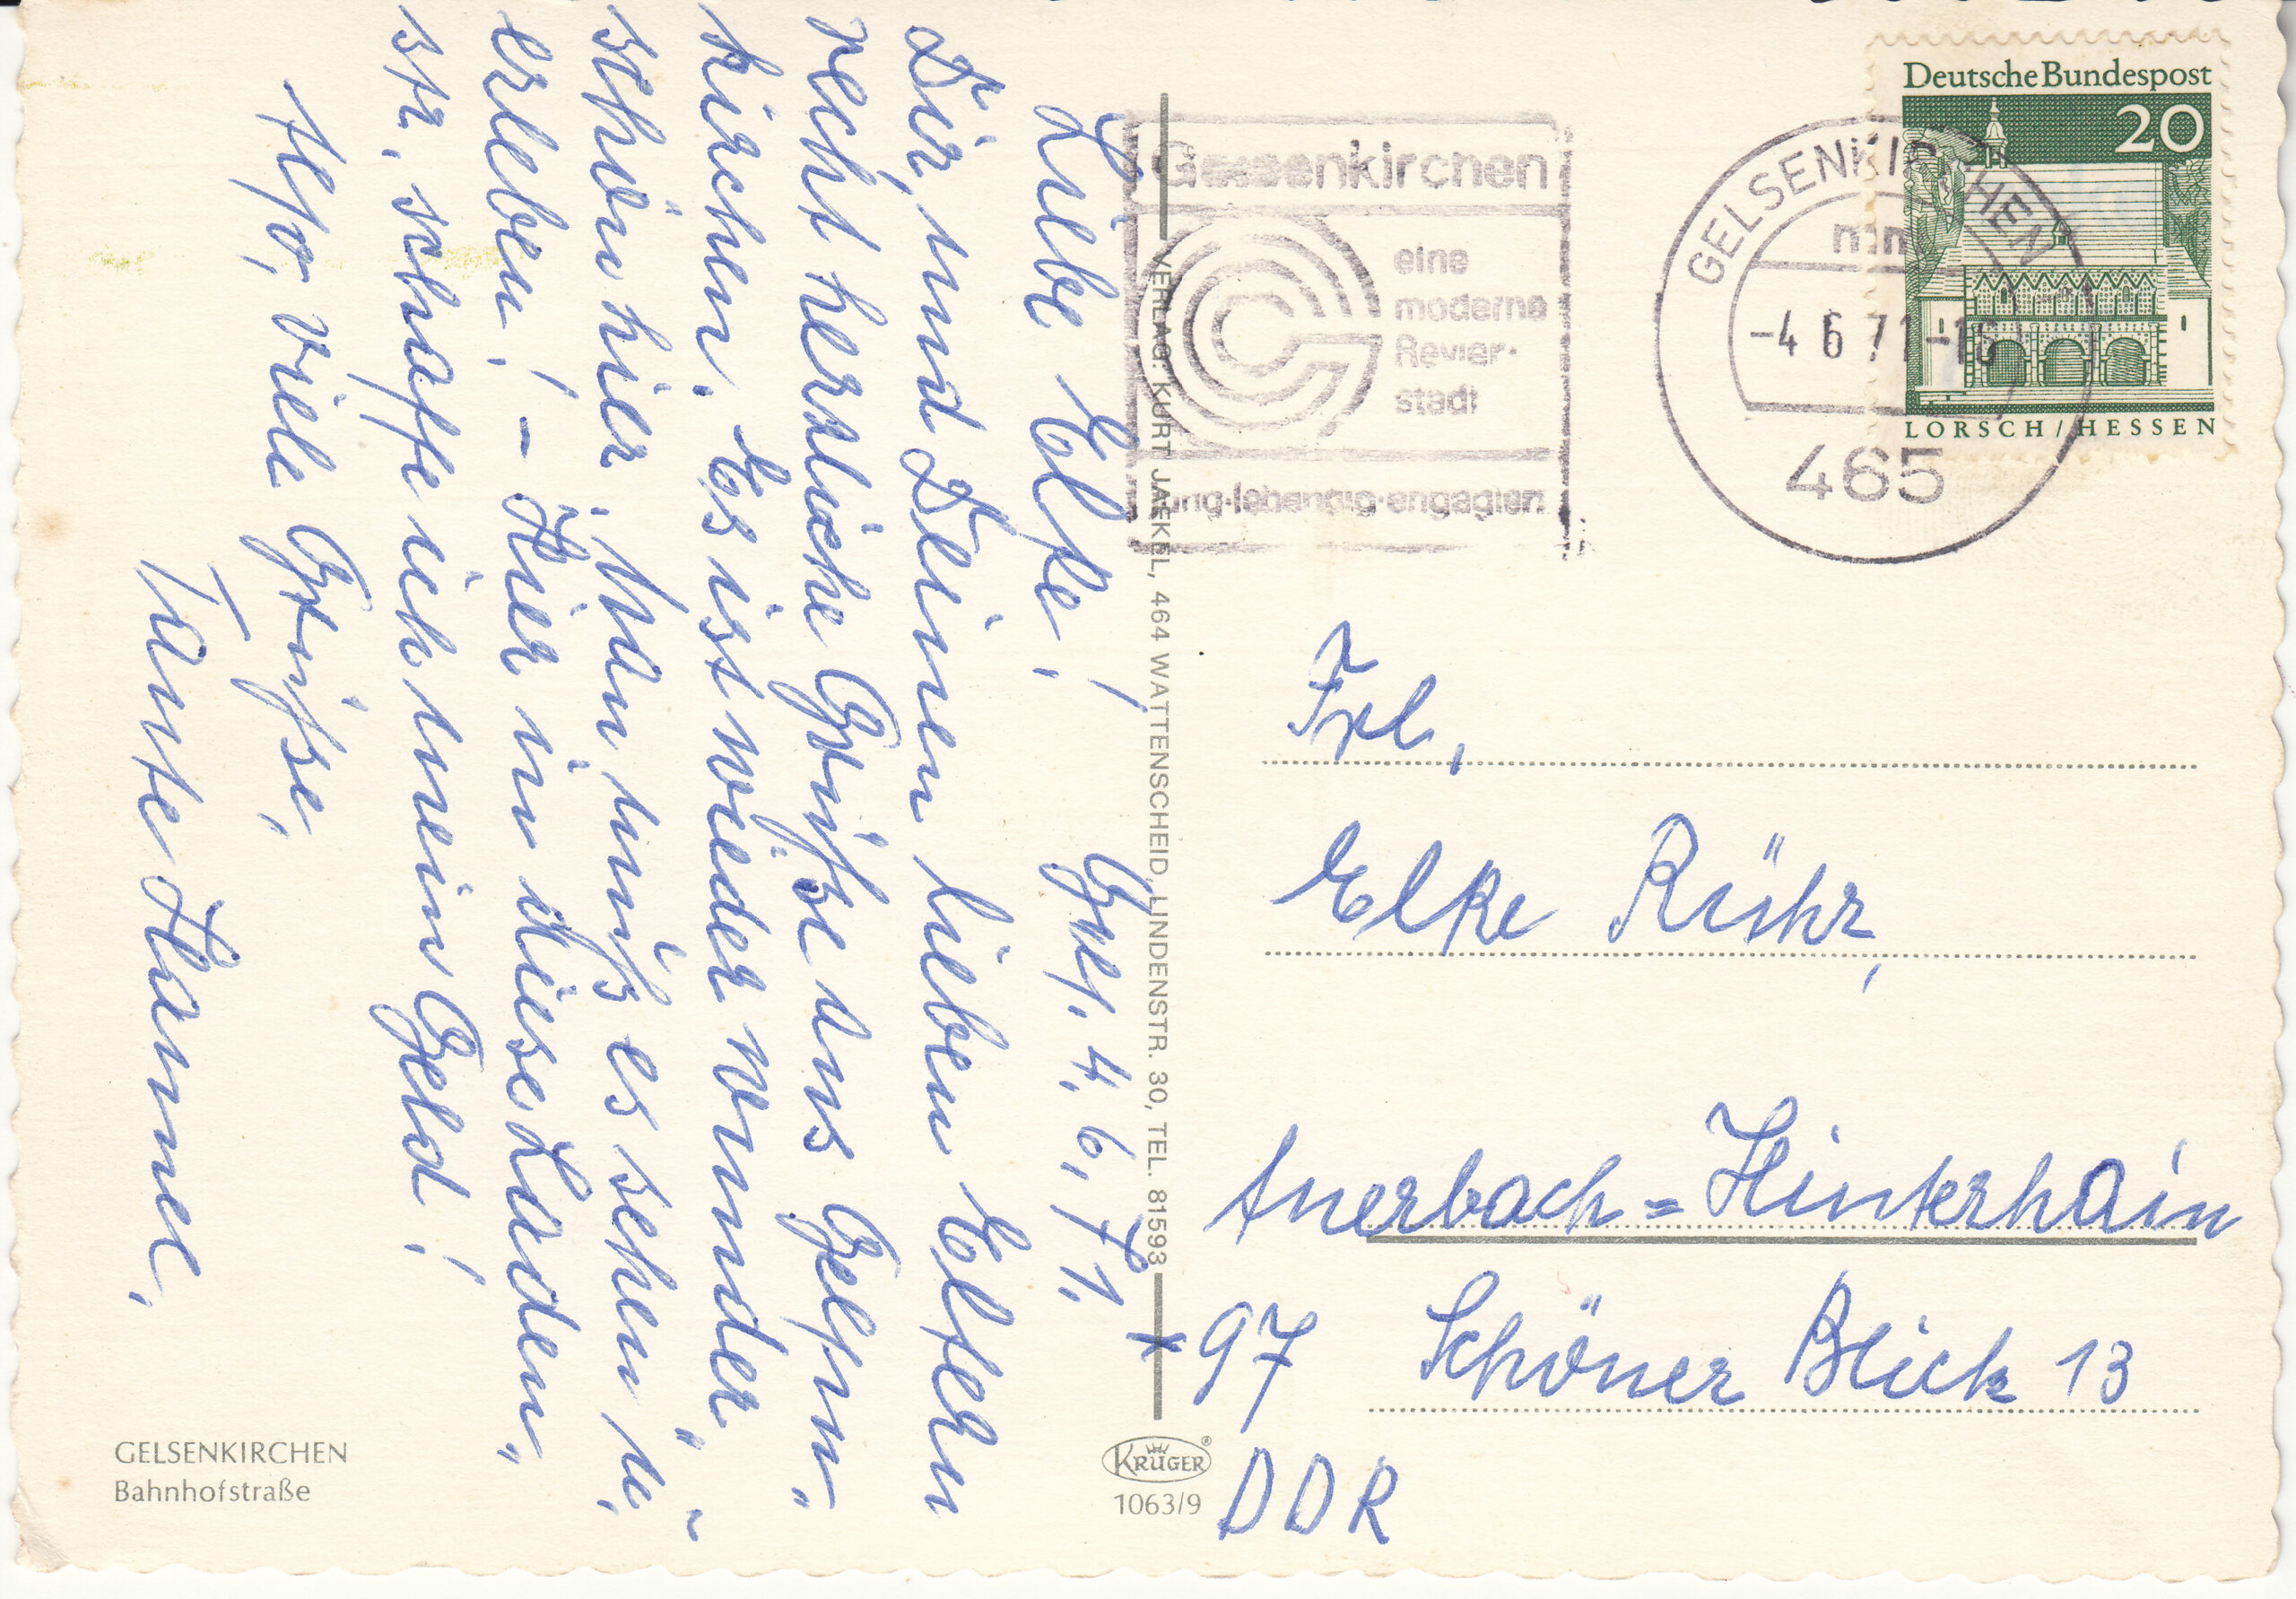 Liebe Elke! Gel. 4.6.71.
Dir, und Deinen lieben Eltern
recht herzliche Grüße aus Gelsen-
kirchen. Es ist wieder wunder-
schön hier, man muß es sehen u.
erleben! - Hier in diese Laden-
str. schaffe ich mein Geld!
Also, viele Grüße,
Tante Hanne.
GELSENKIRCHEN
Bahnhofstraße
VERLAG: KURT JAEKEL, 464 WATTENSCHEID, LINDENSTR. 30, TEL. 81593
KRÜGER
1063/9
Gelsenkirchen
eine
moderne
Revier-
stadt
jung·lebendig·engagiert
GELSENKIRCHEN
-4 6 71-16
465
Deutsche Bundespost
20
LORSCH/HESSEN
Frl.
Elke Rühr,
Auerbach=Hinterhain
97 Schöner Blick 13
DDR